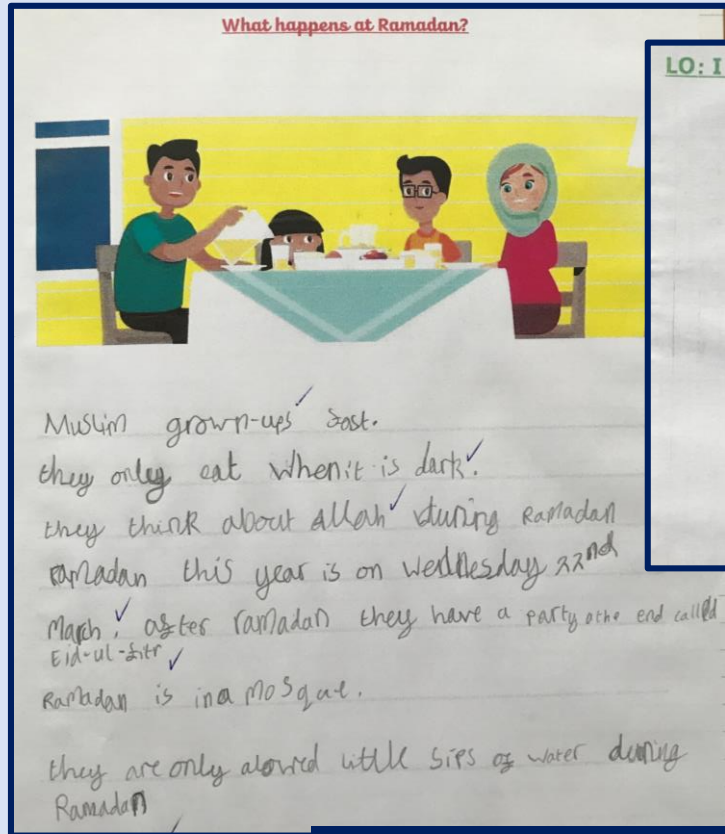 What happens at Ramadan?
LO: I
Muslim grown-ups fast.
they only eat when it is dark.
they think about Allah during Ramadan
ramadan this year is on wednesday 22nd
March. after ramadan they have a party at the end called
Eid-ul-fitr
Ramadan is in a mosque.
they are only alowed little sips of water during
Ramadan